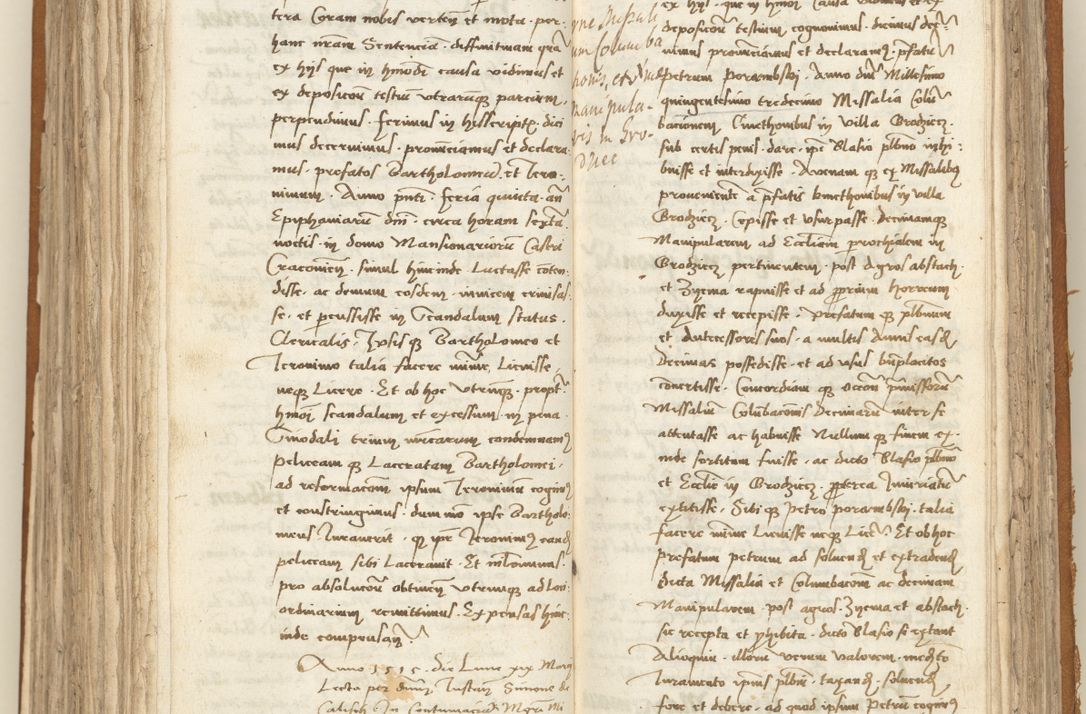 tera Coram nobis verteñ et mota · per-
hanc nr̃am Sentenciã · diffinitiuam quã
ex hijs que in hmõdi causa vidimus et
ex deposicoñ testiũ vtrarumq̃ parcium,
perpendimus · ferimus in hijs scriptᵽ · dici
mus decernimus · pronũciamus et declara-
mus · prefatos Bartholomeũ · et Iero-
nimum · Anno pñti · feria quinta · añ
Epiphaniarũ dñi · circa horam sextã
noctis · in domo Mansionariorũ Castri
Cracouieñ · simul hincinde Luctasse coten-
disse · ac demum eosdem · inuicem crinisas-
se · et percussisse in Scandalum status ·
Clericalis · Ipsis q̃ Bartholomeo et
Ieronimo talia facere minie · Licuisse
neq̃ Licere · Et ob hoc vtrumq̃ · propt̃
hmõi scandalum et excessum · in pena ·
Sinodali trium marcarum condemnam9
peliceam q̃ Laceratam Bartholomei ·
ad reformacõm ipsum Ieronimum cogim9
et constringimus · dummõ ipse Bartholo-
meus Iurauerit · q̃ ipse Ieronim9 eandẽ
peliceam sibi Lacerauit · Et nr̃lominus ·
pro absolucõn obtineñ vtrumq̃ ad loci
ordinarium remittimus · Expensas hinc-
inde compensañ
Anno 1515 · die Lune xix Marcij
Lecta per dñum Iustañ Simone de
Calisch In Contumaciã Mgri Mi
Missali
Columba
honis, et
manipula-
ris in Gro-
dziec
ex hijs · que in hmõi Causa vidimus et ex
deposicoñ testium cognouimus · dicimus decer-
nimus pronũciamus et declaram9 · p̃fatũ
Petrum Porambskj · Anno dñi Millesimo
quingentesimo tredecimo Missalia Colũ-
bacionem Cmethonibus in villa Grodziecz
sub certis penis · dare · ip̃e Blasio pl̃bno inhi-
buisse et interdixisse · Auenam q̃ ex Missalibꝫ
proueniente a p̃fatis kmethonibus in villa
Grodziecz · Cepisse et vsurpasse · Decimamq̃
Manipularem ad Eccl̃iam parochialem in
Grodziecz pertinentem · post Agros abstach ·
et Zijema rapuisse et ad proprium horreum
duxisse et recepisse · Prefatum q̃ pl̃bnum
et Antecessores suos · a multis Annis easdẽ
Decimas possedisse · et ad vsus bñplacitos
conuertisse · Concordiam q̃ occoñ p̃missorũ
Missaliũ Columbacionis Decimarũ inter se
attentasse ac habuisse Nullum q̃ finem ex-
inde sortitum fuisse · ac dicto Blasio pl̃bno
et Eccl̃ie in Grodziecz · propterea Iniuriatũ
extitisse · Sibi q̃ Petro porambskj · talia
facere minie Licuisse neq̃ Licẽ · Et ob hoc
prefatum petrum ad soluendũ et extradendũ
dicta Missalia et Columbacoñ ac decimam
Manipularem · post agros Zijema et abstach ·
sic recepta et p̃hibita · dicto Blasio si extant
Alioquin · illorũ verum valorem · medio
Iuramento ipsius pl̃bni · taxandũ · soluendũ
fore et debere · ad quod ipsum Petrũ cogim9